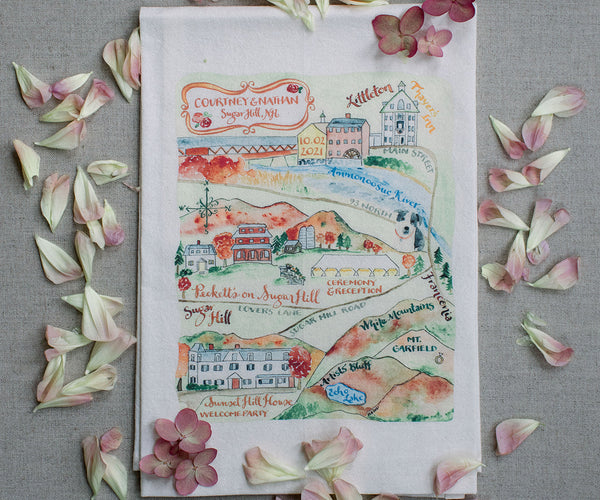 COURTNEY & NATHAN
Sugar Hill, NH
Littleton
Thayers
Inn
10.02
2021
MAIN STREET
Ammonoosuc River
93 NORTH
CEREMONY
& RECEPTION
Peckett's on Sugar Hill
Franconia
LOVERS LANE
SUGAR HILL ROAD
Sugar
Hill
White Mountains
MT.
GARFIELD
Artists Bluff
Echo
Lake
Sunset Hill House
WELCOME PARTY